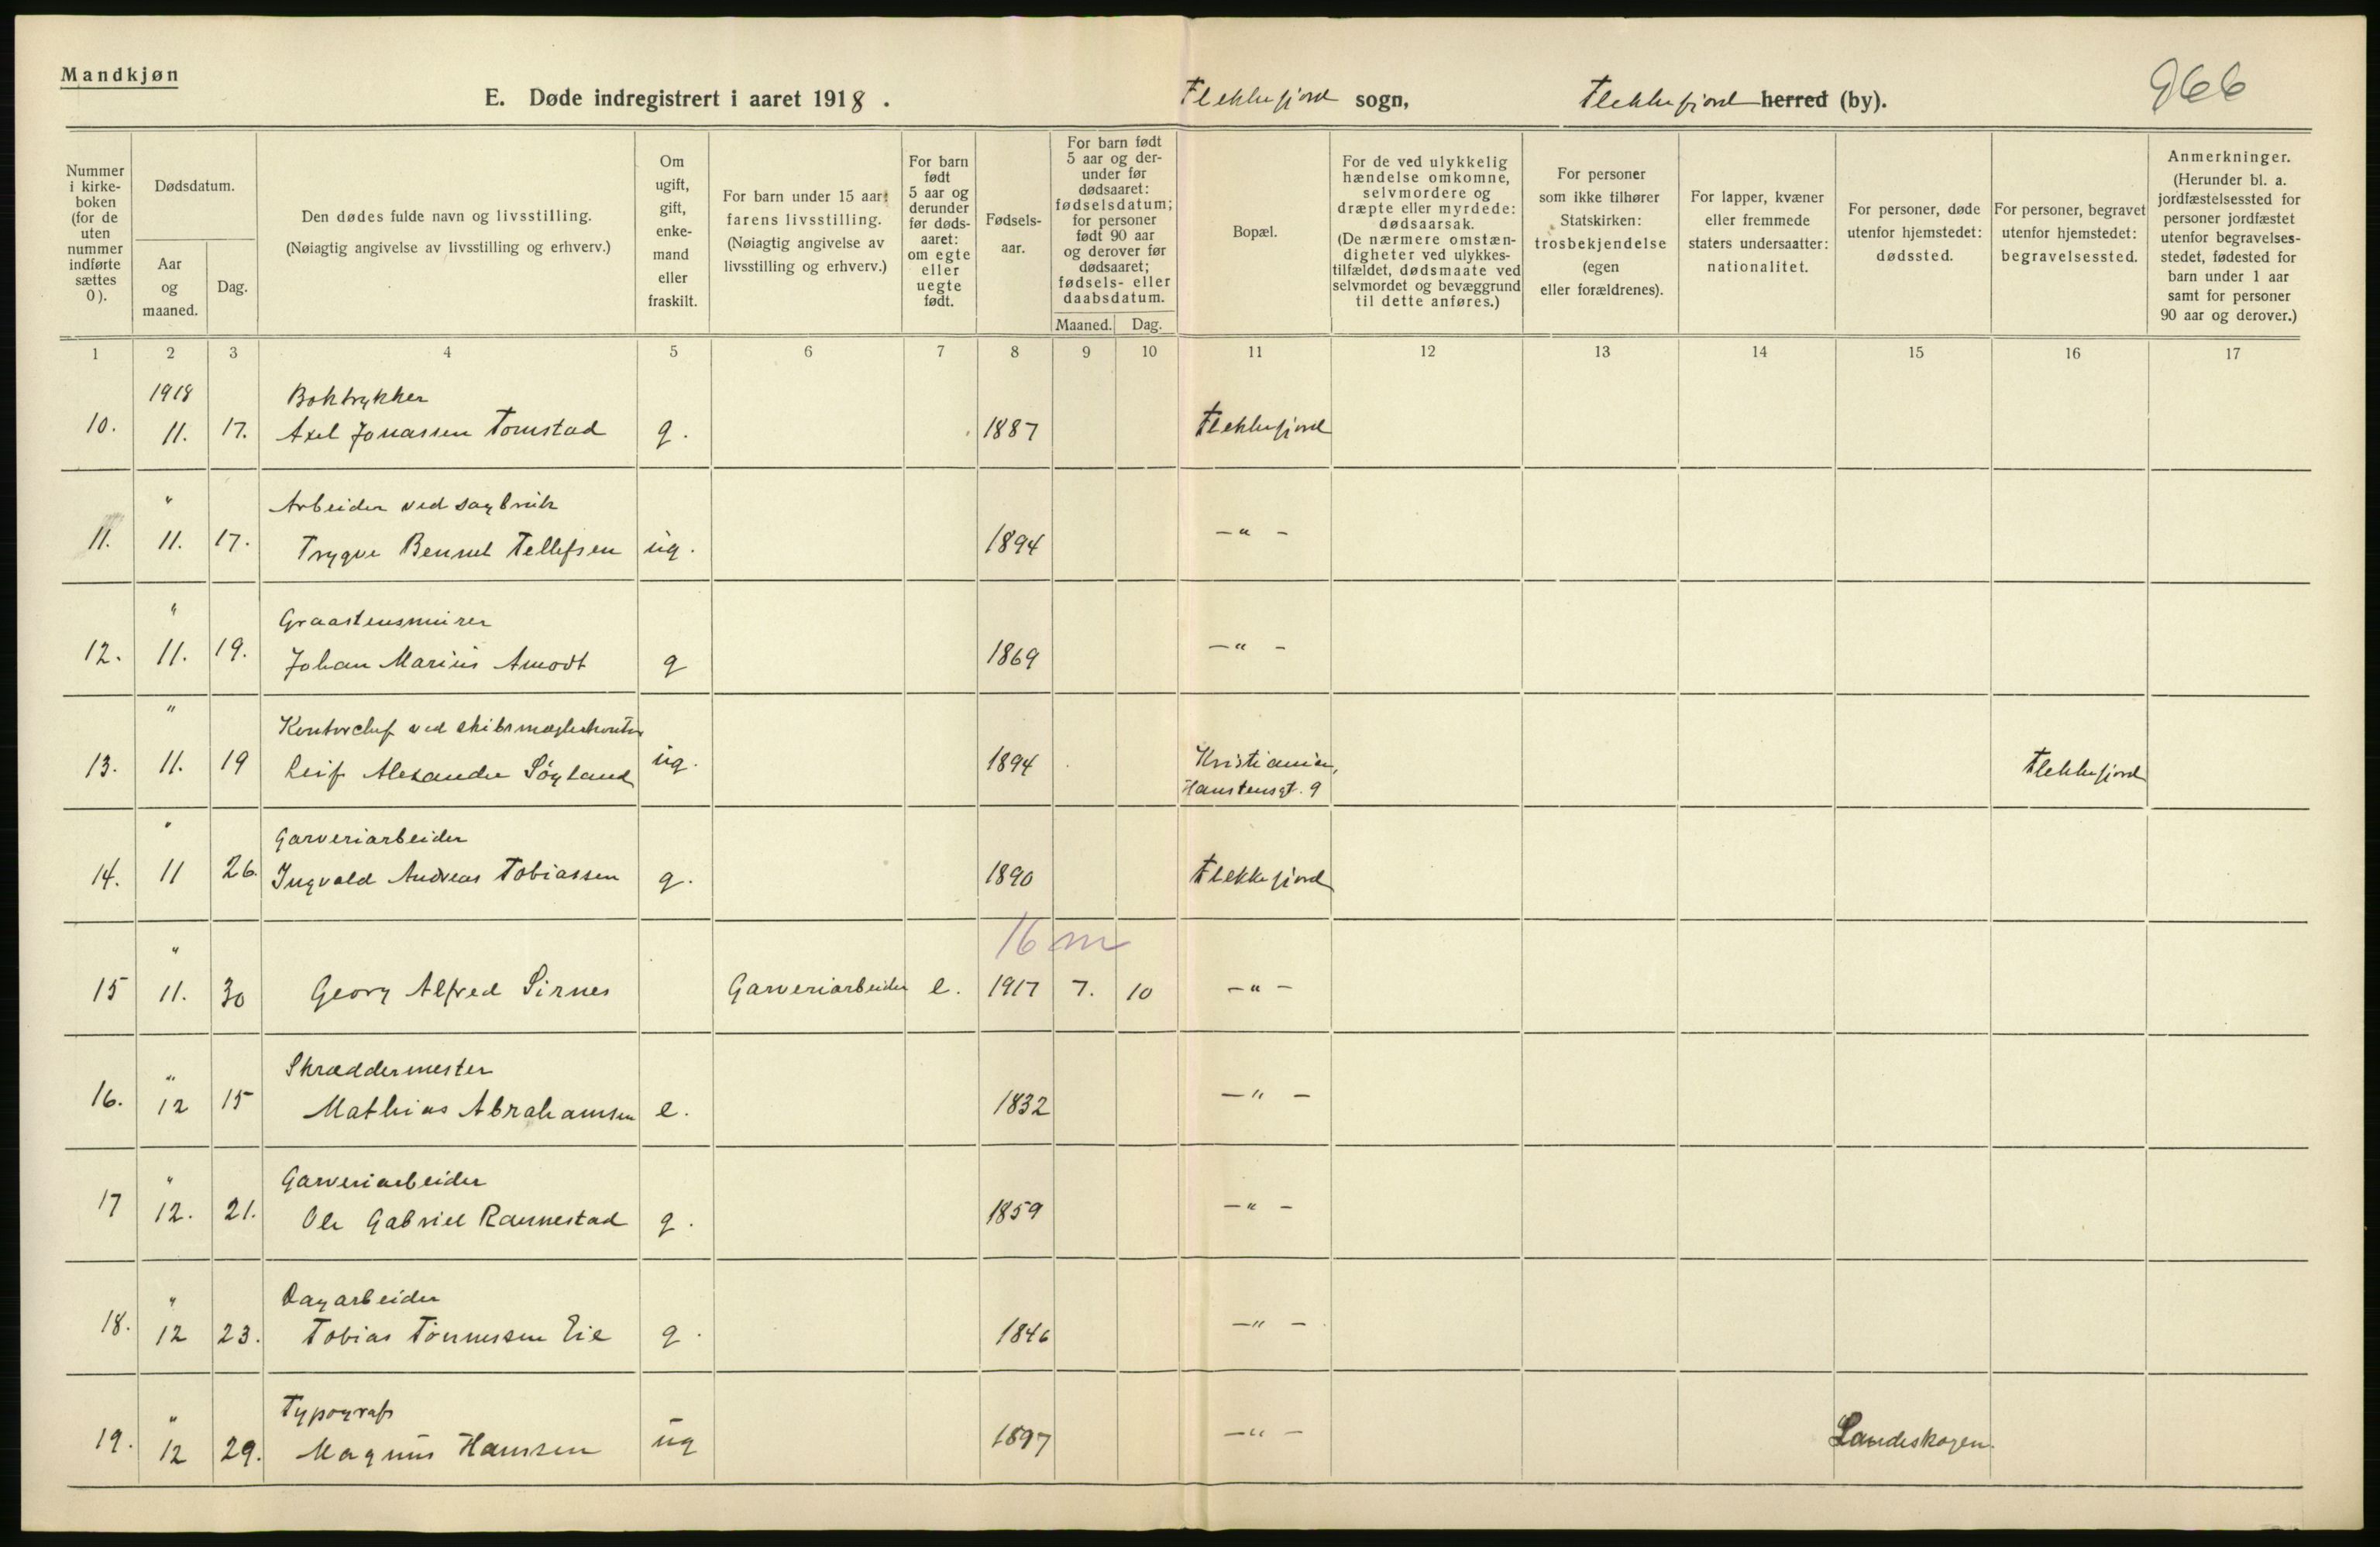 Mandkjøn
E. Døde indregistrert i aaret 1918.
Flekkefjord sogn,
Flekkefjord herred (by).
966
Nummer i kirke-boken (for de uten nummer indførte sættes 0).
Dødsdatum.
Aar og maaned.
Dag.
Den dødes fulde navn og livsstilling.
(Nøiagtig angivelse av livsstilling og erhverv.)
Om ugift, gift, enke-mand eller fraskilt.
For barn under 15 aar: farens livsstilling.
(Nøiagtig angivelse av livsstilling og erhverv.)
For barn født 5 aar og derunder før døds-aaret: om egte eller uegte født.
Fødsels-aar.
For barn født 5 aar og der-under før dødsaaret: fødselsdatum; for personer født 90 aar og derover før dødsaaret; fødsels- eller daabsdatum.
Maaned. Dag.
Bopæl.
For de ved ulykkelig hændelse omkomne, selvmordere og dræpte eller myrdede: dødsaarsak.
(De nærmere omstæn-digheter ved ulykkes-tilfældet, dødsmaate ved selvmordet og bevæggrund til dette anføres.)
For personer som ikke tilhører Statskirken: trosbekjendelse (egen eller forældrenes).
For lapper, kvæner eller fremmede staters undersaatter: nationalitet.
For personer, døde utenfor hjemstedet: dødssted.
For personer, begravet utenfor hjemstedet: begravelsessted.
Anmerkninger.
(Herunder bl. a. jordfæstelsessted for personer jordfæstet utenfor begravelses-stedet, fødested for barn under 1 aar samt for personer 90 aar og derover.)
1 2 3 4 5 6 7 8 9 10 11 12 13 14 15 16 17
1918 Boktrykker
10. 11. 17. Axel Jonassen Tomstad g. 1887 Flekkefjord
" Arbeider ved sagbruk
11. 11. 17. Trygve Bennet Tellefsen ug. 1894 -"-
" Graastensmurer
12. 11. 19. Johan Marius Amodt g 1869 -"-
" Kontorchef ved skibsmæglerkontor
13. 11. 19 Leif Alexander Söyland ug. 1894 Kristiania, Flekkefjord
Hanstensgt. 9
" Garveriarbeider
14. 11 26. Ingvald Andreas Tobiassen g. 1890 Flekkefjord
" 16 m
15 11. 30 Georg Alfred Sirnes Garveriarbeider e. 1917 7. 10 -"-
" Skræddermester
16. 12 15 Mathias Abrahamsen e. 1832 -"-
" Garveriarbeider
17 12. 21. Ole Gabriel Rannestad g. 1859 -"-
" Dagarbeider
18. 12 23. Tobias Tönnessen Eie g. 1846 -"-
" Typograf
19. 12 29. Magnus Hansen ug 1897 -"- Landeskogen.